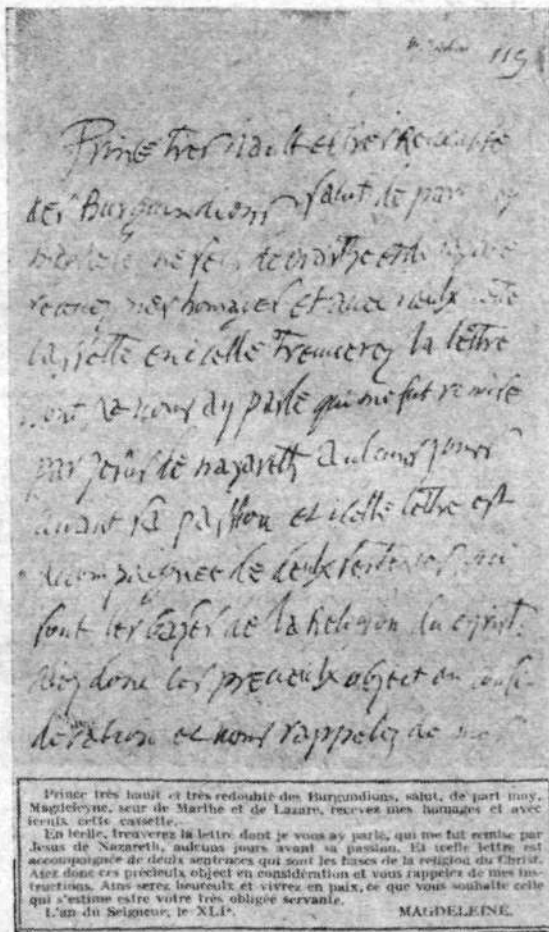 119
Prince tres hault et tres Redoubte
des Burgundions salut de part
Magdeleyne seur de Marthe et de Lazare
recevez mes homages et avec iceulx cette
cassette en icelle treuverez la lettre
dont je vous ay parle qui me fut remise
par Jesus de nazareth aulcuns jours
avant sa passion et icelle lettre est
accompaignee de deulx sentences qui
sont les bases de la Religion du Christ.
Aiez donc ces precieulx object en consi
deration et vous rappelez de mes
Prince très hault et très redoubté des Burgundions, salut, de part moy,
Magdeleyne, seur de Marthe et de Lazare, recevez mes homages et avec
iceulx cette cassette.
En icelle, treuverez la lettre dont je vous ay parlé, qui me fut remise par
Jesus de Nazareth, aulcuns jours avant sa passion. Et icelle lettre est
accompaignée de deulx sentences qui sont les bases de la religion du Christ.
Aiez donc ces précieulx object en considération et vous rappelez de mes ins-
tructions. Ains serez heureulx et vivrez en paix, ce que vous souhaite celle
qui s'estime estre votre très obligée servante.
L'an du Seigneur, le XLIe.
MAGDELEINE.